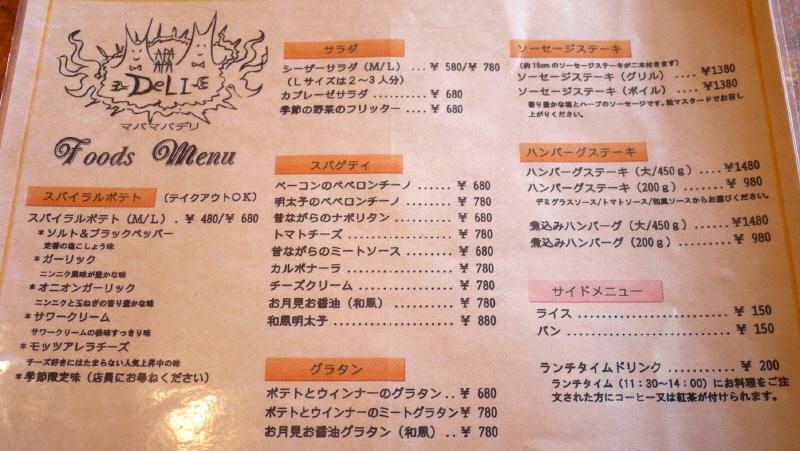 APA APA
DeLI
マパマパデリ
Foods Menu
スパイラルポテト （テイクアウトOK）
スパイラルポテト（M/L）．￥ 480/￥ 680
＊ソルト＆ブラックペッパー
定番の塩こしょう味
＊ガーリック
ニンニク風味が豊かな味
＊オニオンガーリック
ニンニクと玉ねぎの香り豊かな味
＊サワークリーム
サワークリームの酸味すっきり味
＊モッツアレラチーズ
チーズ好きにはたまらない人気上昇中の味
＊季節限定味（店員にお尋ねください）
サラダ
シーザーサラダ（M/L）...￥ 580/￥ 780
（Lサイズは２～３人分）
カプレーゼサラダ ..........￥ 680
季節の野菜のフリッター ....￥ 680
スパゲティ
ベーコンのペペロンチーノ ......￥ 680
明太子のペペロンチーノ ........￥ 780
昔ながらのナポリタン ..........￥ 680
トマトチーズ ..................￥ 780
昔ながらのミートソース ........￥ 680
カルボナーラ ..................￥ 780
チーズクリーム ................￥ 780
お月見お醤油（和風）...........￥ 780
和風明太子 ....................￥ 880
グラタン
ポテトとウインナーのグラタン..￥ 680
ポテトとウインナーのミートグラタン￥ 780
お月見お醤油グラタン（和風）..￥ 780
ソーセージステーキ
（約15cmのソーセージステーキが二本付きます）
ソーセージステーキ（グリル）....￥1380
ソーセージステーキ（ボイル）....￥1380
香り豊かな塩とハーブのソーセージです。粒マスタードでお召し
上がりください。
ハンバーグステーキ
ハンバーグステーキ（大/450ｇ）....￥1480
ハンバーグステーキ（200ｇ）.......￥ 980
デミグラスソース/トマトソース/和風ソースからお選びください。
煮込みハンバーグ（大/450ｇ）......￥1480
煮込みハンバーグ（200ｇ）.........￥ 980
サイドメニュー
ライス ......................￥ 150
パン ........................￥ 150
ランチタイムドリンク ...........￥ 200
ランチタイム（11：30～14：00）にお料理をご注
文された方にコーヒー又は紅茶が付けられます。